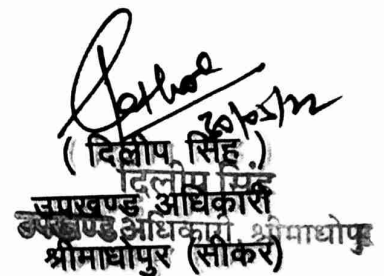 Rathore
20/05/22
( दिलीप सिंह )
दिलीप सिंह
उपखण्ड अधिकारी
उपखण्ड अधिकारी श्रीमाधोपुर
श्रीमाधोपुर (सीकर)